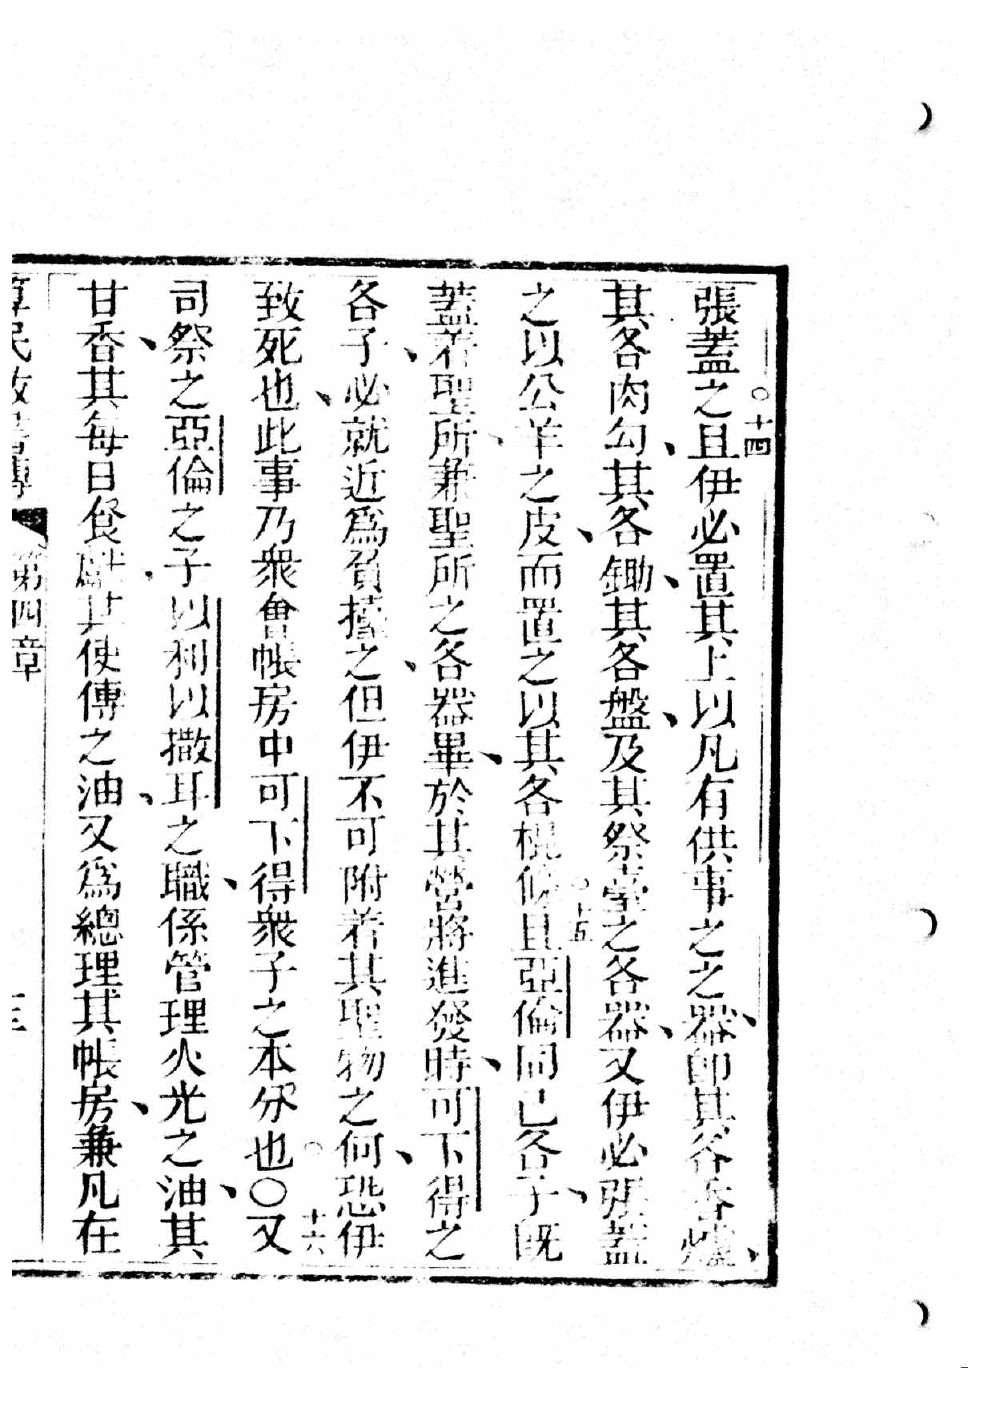 張蓋之○十四且伊必置其上以凡有供事之之器、卽其各香爐、
其各肉勾、其各鋤、其各盤、及其祭臺之各器、又伊必張蓋
之以公羊之皮、而置之以其各棍條○十五且亞倫同已各子、旣
蓋着聖所、兼聖所之各器畢、於其營將進發時、可下得之
各子、必就近爲負擡之、但伊不可附着其聖物之何、恐伊
致死也、此事乃衆會帳房中可下得衆子之本分也○十六○又
司祭之亞倫之子以利以撒耳之職、係管理火光之油、其
甘香、其每日食獻、其使傅之油、又爲總理其帳房、兼凡在
算民數書傳 第四章 三